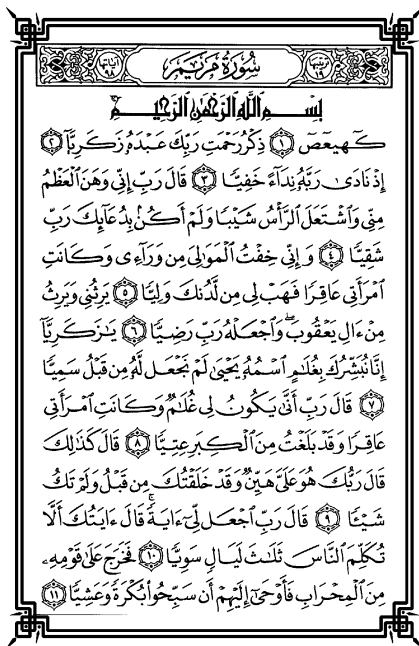 آياتها ٩٨ سورة مريم ترتيبها ١٩
بِسْمِ اللَّهِ الرَّحْمَٰنِ الرَّحِيمِ
كٓهيعٓصٓ ١ ذِكْرُ رَحْمَتِ رَبِّكَ عَبْدَهُۥ زَكَرِيَّآ ٢
إِذْ نَادَىٰ رَبَّهُۥ نِدَآءً خَفِيًّا ٣ قَالَ رَبِّ إِنِّي وَهَنَ الْعَظْمُ
مِنِّي وَاشْتَعَلَ الرَّأْسُ شَيْبًا وَلَمْ أَكُنۢ بِدُعَآئِكَ رَبِّ
شَقِيًّا ٤ وَإِنِّي خِفْتُ الْمَوَٰلِيَ مِن وَرَآءِي وَكَانَتِ
امْرَأَتِي عَاقِرًا فَهَبْ لِي مِن لَّدُنكَ وَلِيًّا ٥ يَرِثُنِي وَيَرِثُ
مِنْ ءَالِ يَعْقُوبَۖ وَاجْعَلْهُ رَبِّ رَضِيًّا ٦ يَٰزَكَرِيَّآ
إِنَّا نُبَشِّرُكَ بِغُلَٰمٍ اسْمُهُۥ يَحْيَىٰ لَمْ نَجْعَل لَّهُۥ مِن قَبْلُ سَمِيًّا
٧ قَالَ رَبِّ أَنَّىٰ يَكُونُ لِي غُلَٰمٌ وَكَانَتِ امْرَأَتِي
عَاقِرًا وَقَدْ بَلَغْتُ مِنَ الْكِبَرِ عِتِيًّا ٨ قَالَ كَذَٰلِكَ
قَالَ رَبُّكَ هُوَ عَلَيَّ هَيِّنٌ وَقَدْ خَلَقْتُكَ مِن قَبْلُ وَلَمْ تَكُ
شَيْئًا ٩ قَالَ رَبِّ اجْعَل لِّي ءَايَةًۚ قَالَ ءَايَتُكَ أَلَّا
تُكَلِّمَ النَّاسَ ثَلَٰثَ لَيَالٍ سَوِيًّا ١٠ فَخَرَجَ عَلَىٰ قَوْمِهِۦ
مِنَ الْمِحْرَابِ فَأَوْحَىٰٓ إِلَيْهِمْ أَن سَبِّحُوا۟ بُكْرَةً وَعَشِيًّا ١١